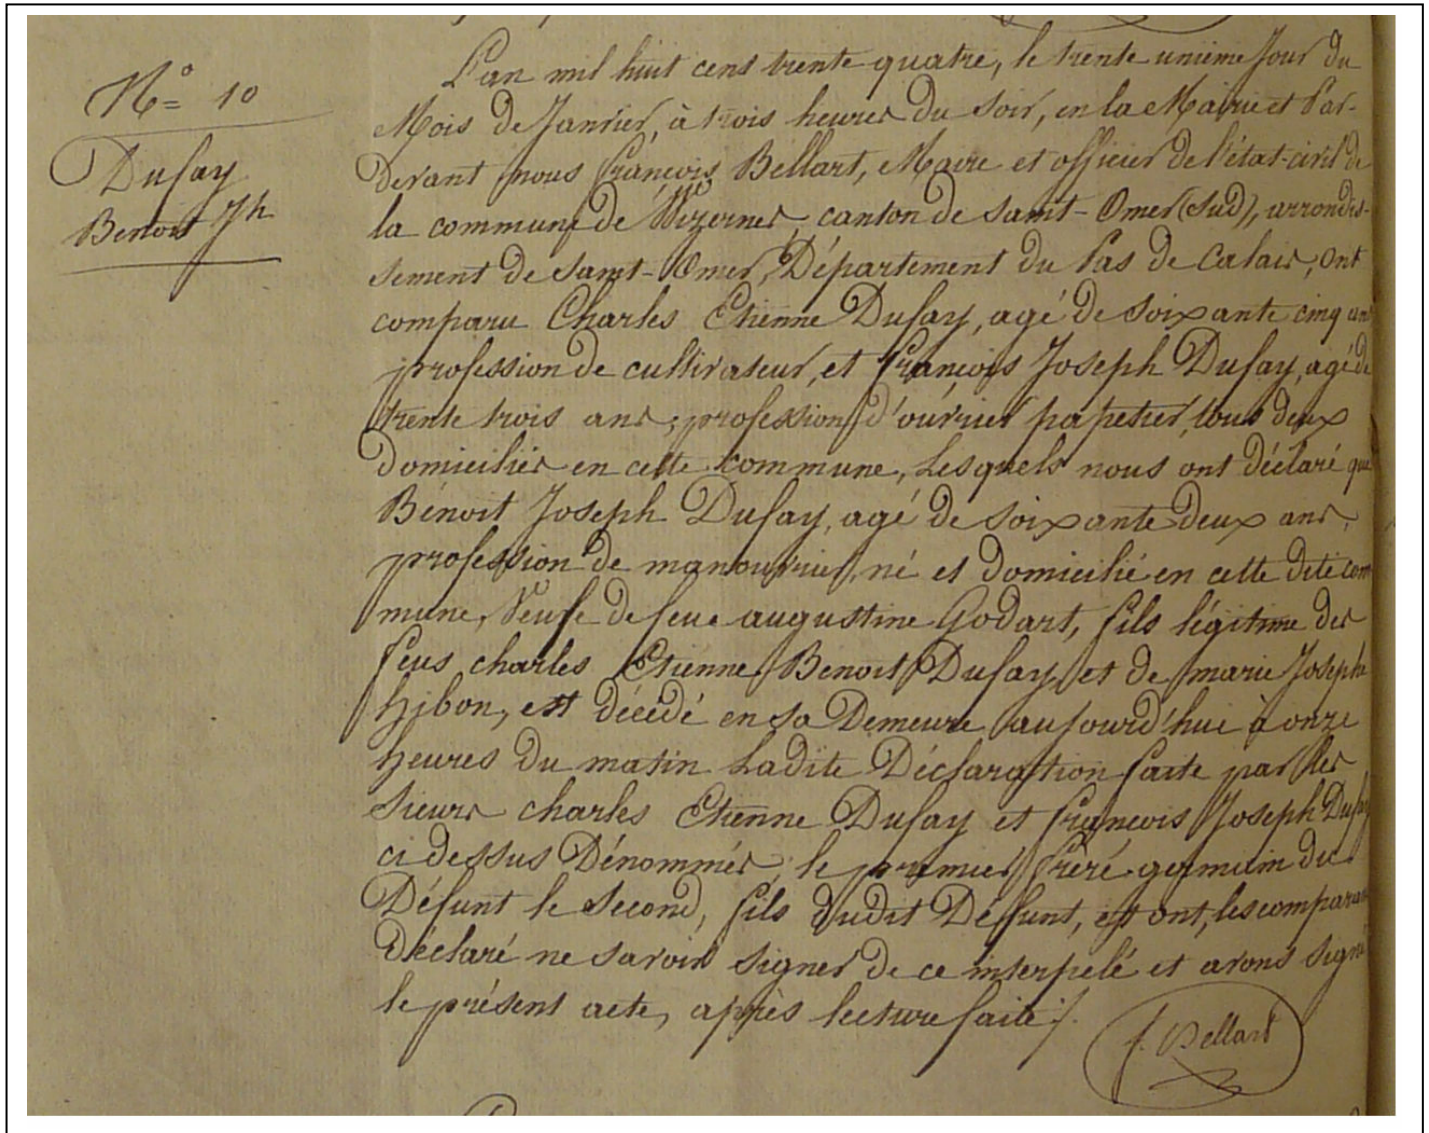 N° 10
Dufay
Benoit Jh
L'an mil huit cent trente quatre, le trente unième Jour du
Mois de Janvier, à trois heures du soir, en la Mairie et Par-
devant nous françois Bellart, Maire et officier de l'état-civil de
la commune de Wizernes, canton de saint-Omer (Sud), arrondis-
sement de saint-Omer, Département du Pas de Calais, ont
comparu Charles Etienne Dufay, agé de soixante cinq ans
profession de cultivateur, et françois Joseph Dufay, agé de
trente trois ans, profession d'ouvrier papetier, tous deux
domiciliés en cette commune, Lesquels nous ont déclaré que
Bénoit Joseph Dufay, agé de soixante deux ans,
profession de manouvrier, né et domicilié en cette dite com
mune, Veuf de feue augustine Godart, fils légitime des
feus charles Etienne Benoit Dufay et de marie Josephe
hibon, est décédé en sa Demeure aujourd'hui à onze
heures du matin Ladite Déclaration faite par les
sieurs charles Etienne Dufay et françois Joseph Dufay
ci dessus Dénommés, le premier frère germain du
Défunt le second, fils dudit Défunt, et ont, les comparans
déclaré ne savoir signer de ce interpelé et avons signé
le présent acte, après lecture faite ./.
f. Bellart